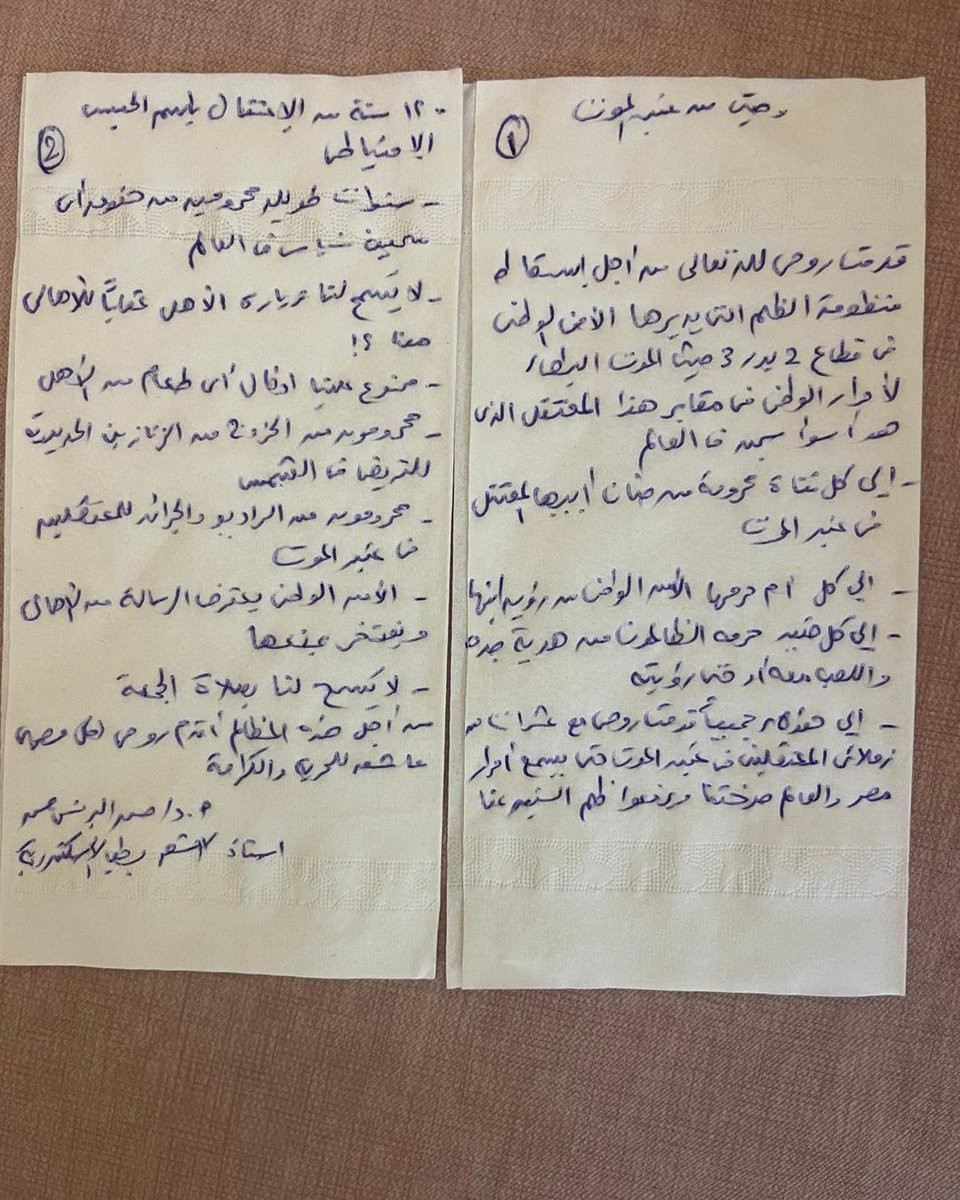 وصيتى من عنبر الموت
①
قدمت روحى لله تعالى من أجل إسقاط
منظومة الظلم التى يديرها الأمن الوطنى
فى قطاع 2 بدر 3 حيث الموت البطئ
لأحرار الوطن فى مقابر هذا المعتقل الذى
هو أسوأ سجن فى العالم
- إلى كل فتاة محرومة من حنان أبيها المعتقل
فى عنبر الموت
- إلى كل أم حرمها الأمن الوطنى من رؤية إبنها
- إلى كل حفيد حرمه الظالمون من هدية جده
واللعب معه أو حتى رؤيته
- إلى هؤلاء جميعاً قدمت روحى مع عشرات من
زملائى المعتقلين فى عنبر الموت حتى يسمع أحرار
مصر والعالم صرختنا ويرفعوا ظلم السنين عنا
١٢ سنة من الإعتقال بإسم الحبس
②
الإحتياطى
- سنوات طويلة محرومين من حقوق أى
سجين سياسى فى العالم
- لا يُسمح لنا بزيارة الأهل عقاباً للأهالى
معنا ؟!
- ممنوع علينا ادخال أى طعام من الأهل
- محرومون من الخروج من الزنازين الحديدية
للتريض فى الشمس
- محرومون من الراديو والجرائد للمعتقلين
فى عنبر الموت
- الأمن الوطنى يعترض الرسالة من الأهالى
ويفتخر بمنعها
- لا يُسمح لنا بصلاة الجمعة
من أجل هذه المظالم أقدم روحى لكل مصرى
عاشق للحرية والكرامة
أ.د/ حسن البرنس
استاذ الأشعة بطب الإسكندرية